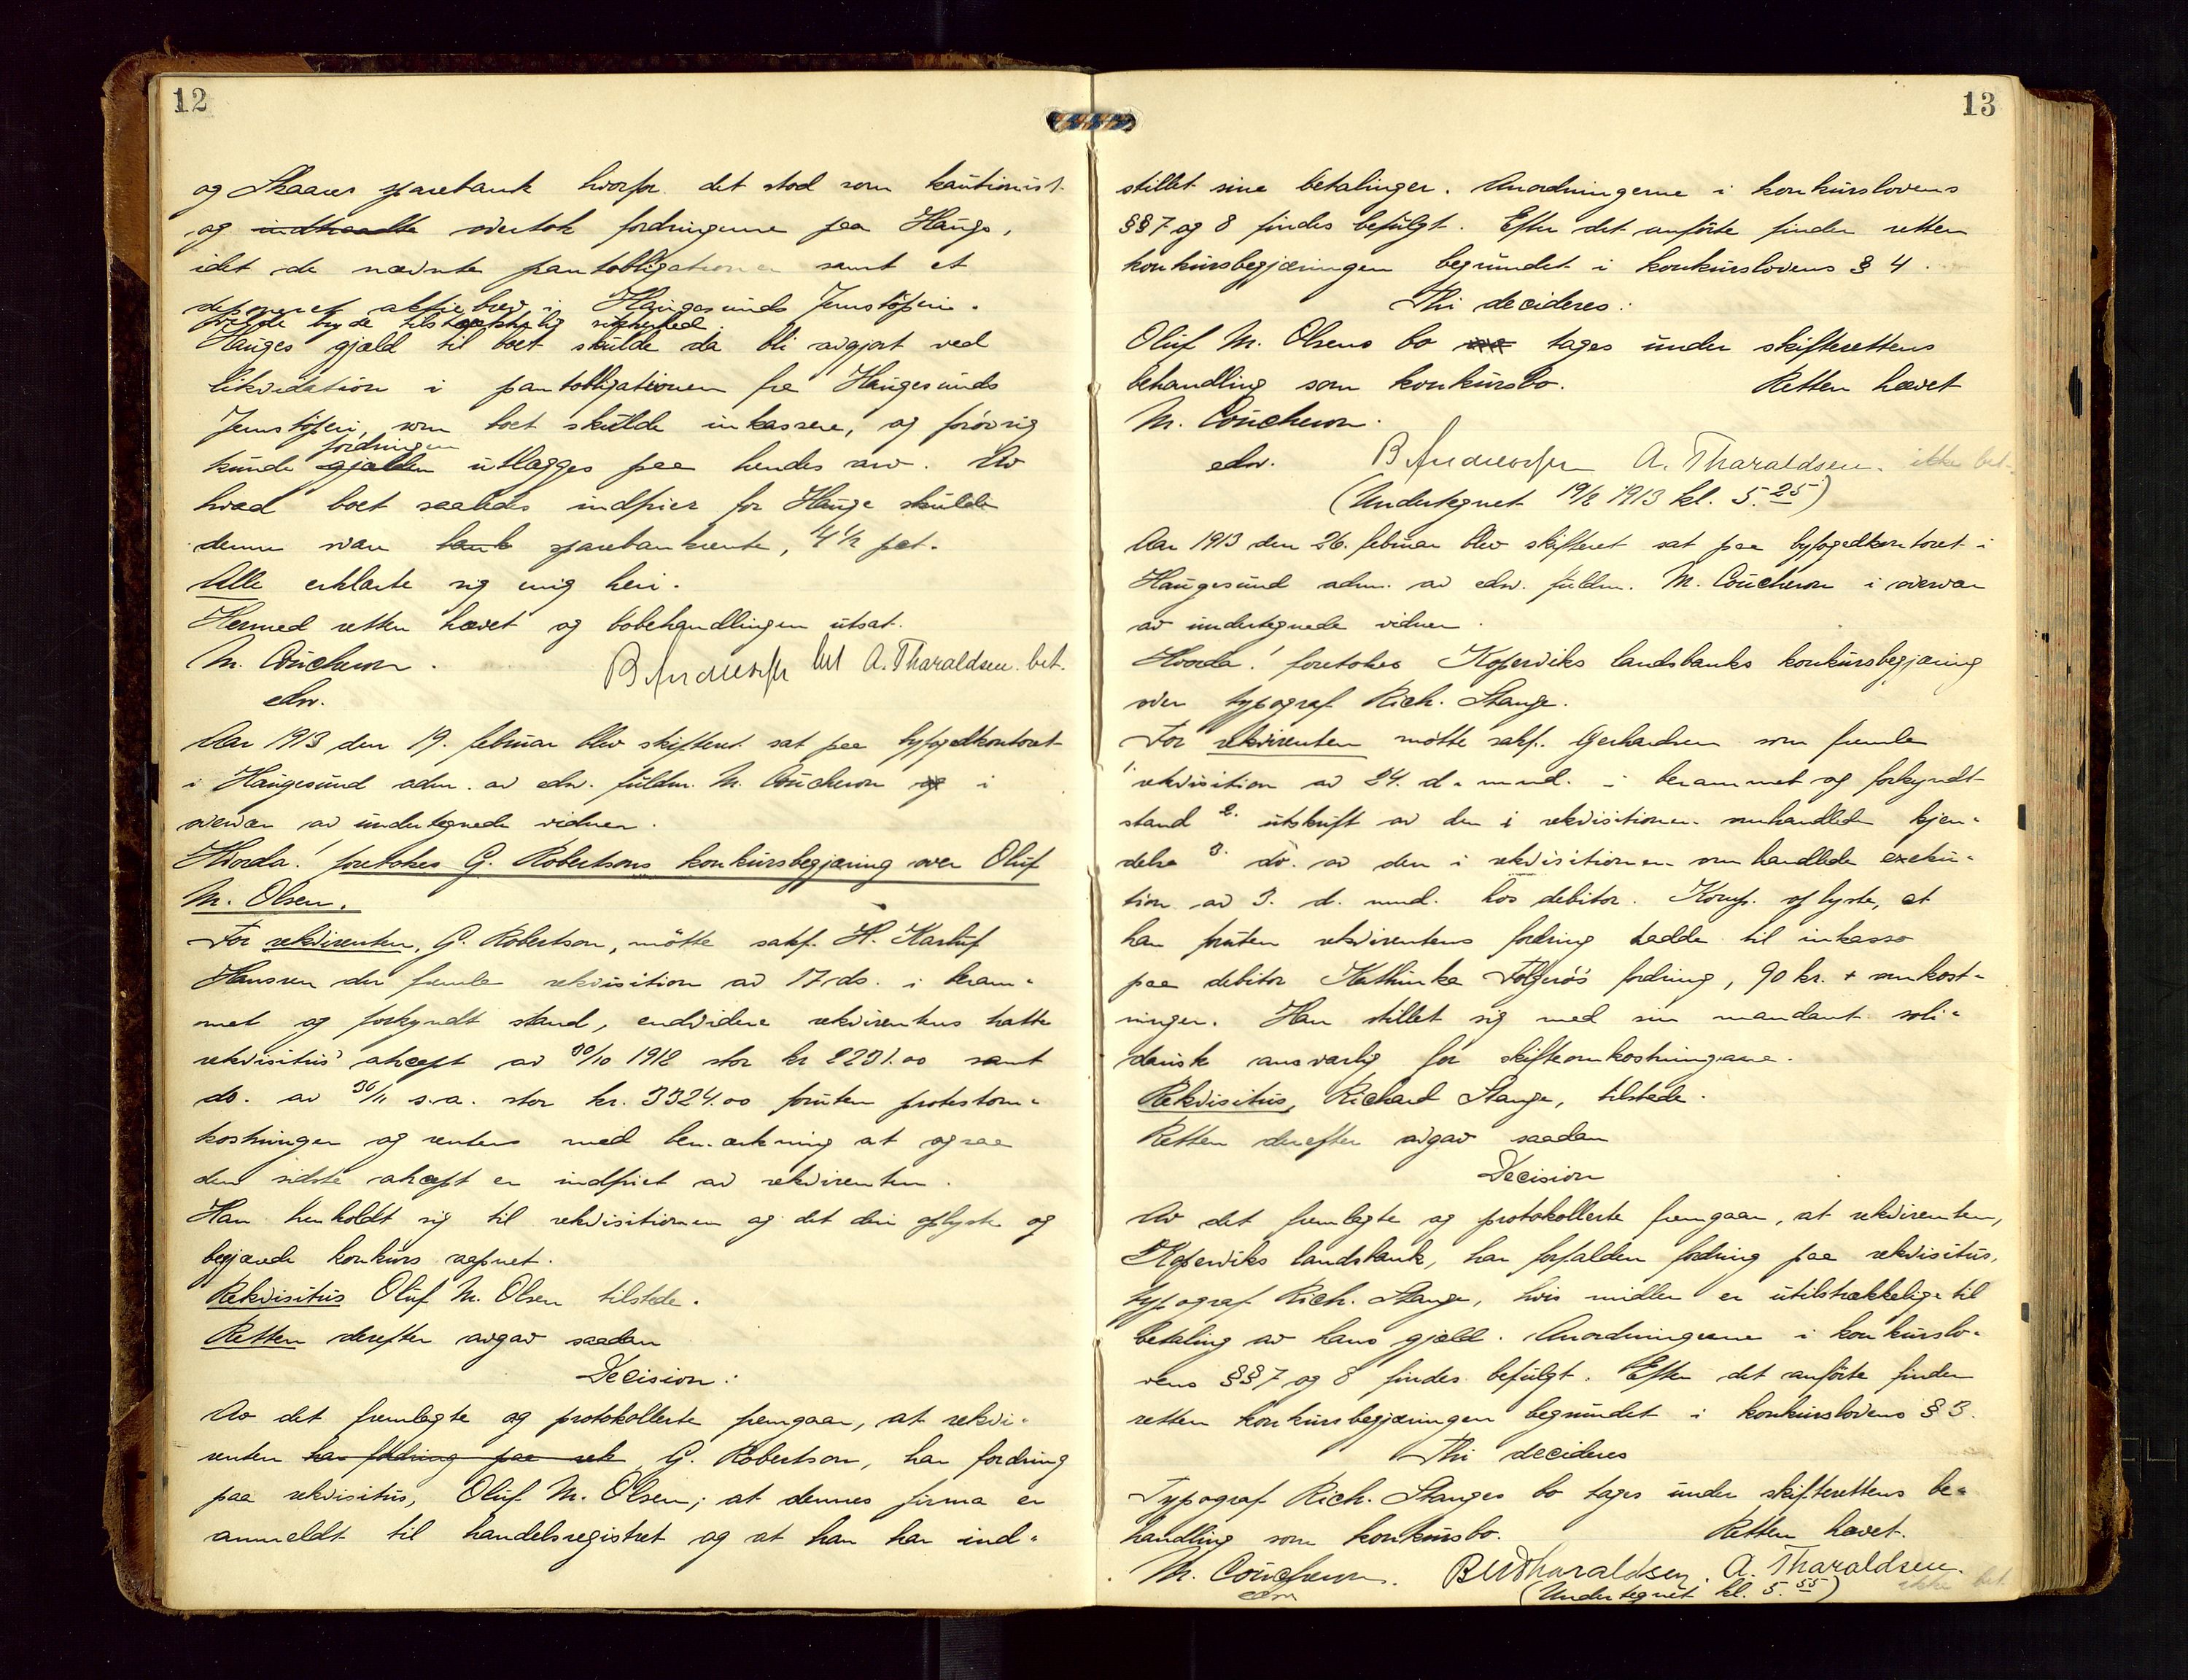 12
og Skaares sparebank hvorfor det stod som kautionist
og indtraadte overtok fordringerne paa Hauge,
idet de nævnte pantobligationer samt et
deponeret aktiebrev i Haugesunds Jernstøperi
vilde byde tilstrækkelig sikkerhed.
Hauges gjæld til boet skulde da bli avgjort ved
likvidation i pantobligationen fra Haugesunds
Jernstøperi, som boet skulde inkassere, og forøvrig
kunde gjælden fordringen utlægges paa hendes arv. Av
hvad boet saaledes indfrier for Hauge skulde
denne svare bank sparebankrente, 4½ pct.
Alle erklærte sig enig heri.
Hermed retten hævet og bobehandlingen utsat.
M. Coucheron. B Andreassen bet A. Tharaldsen. bet.
edsv.
Aar 1913 den 19. februar blev skifteret sat paa byfogedkontoret
i Haugesund adm. av edsv. fuldm. M. Coucheron og i
overvær av undertegnede vidner.
Hvorda! foretokes G. Robertsons konkursbegjæring over Oluf
M. Olsen.
For rekvirenten, G. Robertson, møtte sakf. H. Karluf
Hanssen der fremla rekvisition av 17. ds. i beram-
met og forkyndt stand, endvidere rekvirentens hatte
rekvisiti aksept av 30/10 1912 stor kr 2231.00 samt
do. av 30/11 s.a. stor kr. 3324.00 foruten protestom-
kostninger og renter med bemerkning at ogsaa
den sidste aksept er indfriet av rekvirenten.
Han henholdt sig til rekvisitionen og det deri oplyste og
begjærede konkurs aapnet.
Rekvisitus Oluf M. Olsen tilstede.
Retten derefter avgav saadan
Decision:
Av det fremlagte og protokollerte fremgaar, at rekvi-
renten har fordring paa rek G. Robertson, har fordring
paa rekvisitus, Oluf M. Olsen; at dennes firma er
anmeldt til handelsregistret og at han har ind-
13
stillet sine betalinger. Anordningerne i konkurslovens
§§ 7 og 8 findes befulgt. Efter det anførte finder retten
konkursbegjæringen begrundet i konkurslovens § 4.
Thi decideres:
Oluf M. Olsens bo tages under skifterettens
behandling som konkursbo. Retten hævet
M. Coucheron.
edsv. B Andreassen A. Tharaldsen. ikke bet.
(Undertegnet 19/2 1913 kl. 5.25)
Aar 1913 den 26. februar blev skifteret sat paa byfogedkontoret i
Haugesund adm. av edsv. fuldm. M. Coucheron i overvær
av undertegnede vidner.
Hvorda! foretokes Koperviks landsbanks konkursbegjæring
over typograf Rich. Stange.
For rekvirenten møtte sakf. Gerhardsen som fremla
1. rekvisition av 24. d. mnd. i berammet og forkyndt
stand 2. utskrift av den i rekvisitionen omhandlede kjen-
delse 3. do. av den i rekvisitionen omhandlede exeku-
tion av 3. d. mnd. hos debitor. Komp. oplyste, at
han foruten rekvirentens fordring hadde til inkasso
paa debitor Kathinka Folgerøs fordring, 90 kr. + omkost-
ninger. Han stillet sig med sin mandant soli-
darisk ansvarlig for skifteomkostningerne.
Rekvisitus, Richard Stange, tilstede.
Retten derefter avgav saadan
Decision
Av det fremlagte og protokollerte fremgaar, at rekvirenten,
Koperviks landsbank, har forfalden fordring paa rekvisitus,
typograf Rich. Stange, hvis midler er utilstrækkelige til
betaling av hans gjæld. Anordningerne i konkurslo-
vens §§ 7 og 8 findes befulgt. Efter det anførte finder
retten konkursbegjæringen begrundet i konkurslovens § 3.
Thi decideres
Typograf Rich. Stanges bo tages under skifterettens be-
handling som konkursbo. Retten hævet.
M. Coucheron. B Tharaldsen. A. Tharaldsen.
edsv (Undertegnet kl. 5.55) ikke bet.